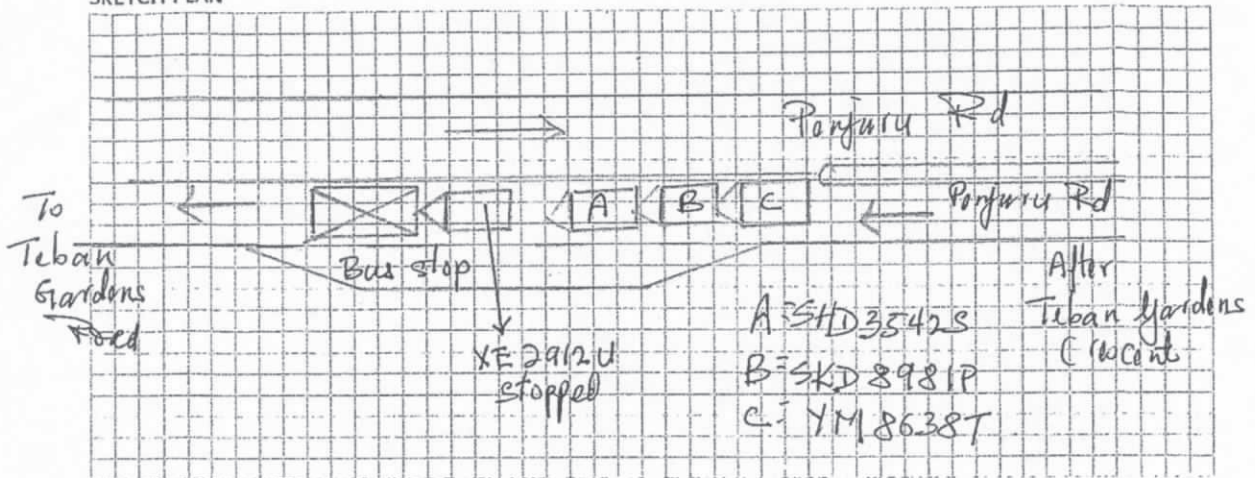 SKETCH PLAN
Penjuru Rd
To
Teban
Gardens
Road
A
B
C
Penjuru Rd
Bus stop
After
Teban Gardens
Crescent
XE 2912U
stopped
A = SHD3542S
B = SKD8981P
C = YM8638T